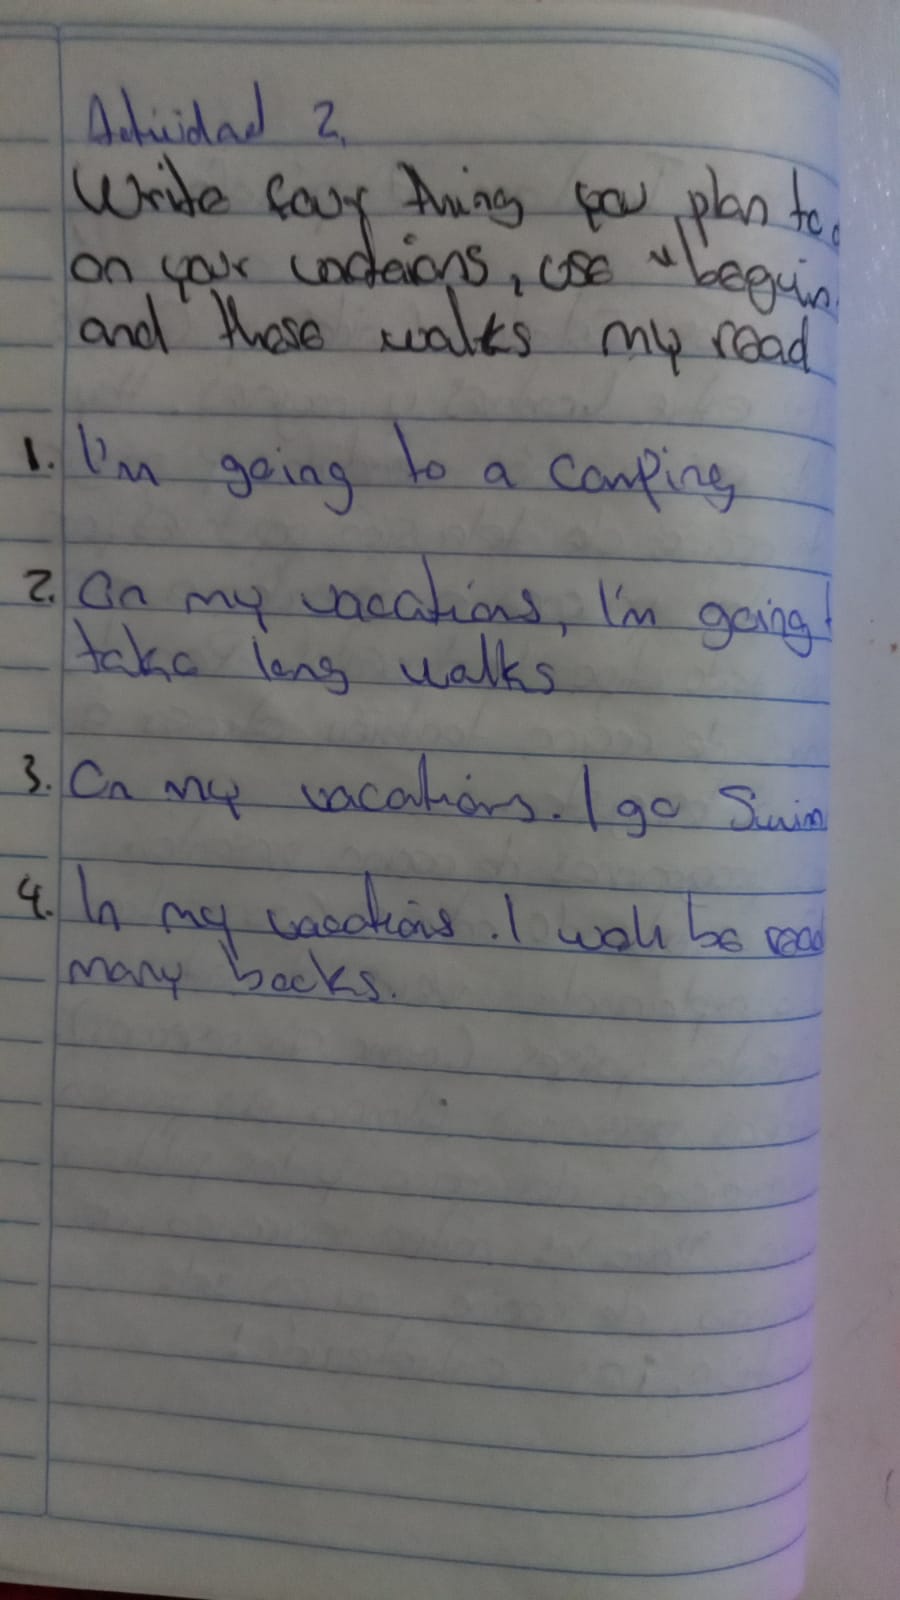 Actividad 2.
Write four thing you plan to
on your, use begin
and these walks my read
1. I'm going to a camping
2. On my vacations, I'm going
take long walks
3. On my vacations. I go Swim
4. In my vacations. I be read
many books.